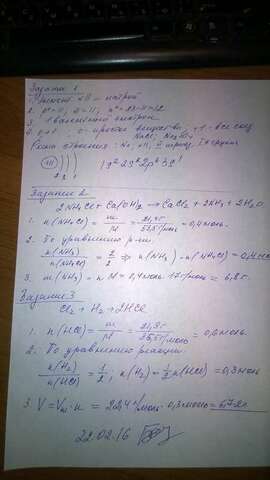 Задание 1
1. Элемент №11 – натрий
2. p⁺=11, ē=11, n⁰=23-11=12
3. 1 валентный электрон
NaCl, Na₂SO₄
+11 ) ) )
1s² 2s² 2p⁶ 3s¹
Задание 2
2NH₄Cl + Ca(OH)₂ → CaCl₂ + 2NH₃ + 2H₂O
1. n(NH₄Cl) = m/M = 21,4г/53,5г/моль = 0,4моль.
2. По уравнению р-ии
n(NH₃)/n(NH₄Cl) = 2/2 ⇒ n(NH₃) = n(NH₄Cl) = 0,4моль
3. m(NH₃) = n·M = 0,4моль·17г/моль = 6,8г.
Задание 3
Cl₂ + H₂ → 2HCl
1. n(HCl) = m/M = 21,9г/36,5г/моль = 0,6моль.
2. По уравнению реакции
n(H₂)/n(HCl) = 1/2; n(H₂) = 1/2 n(HCl) = 0,3моль
3. V = Vm·n = 22,4л/моль·0,3моль = 6,72л.
22.02.16